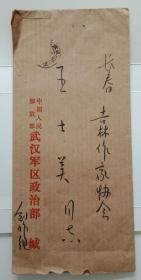 长春
吉林作家协会
王士美同志
中国人民
解放军
武汉军区政治部
缄